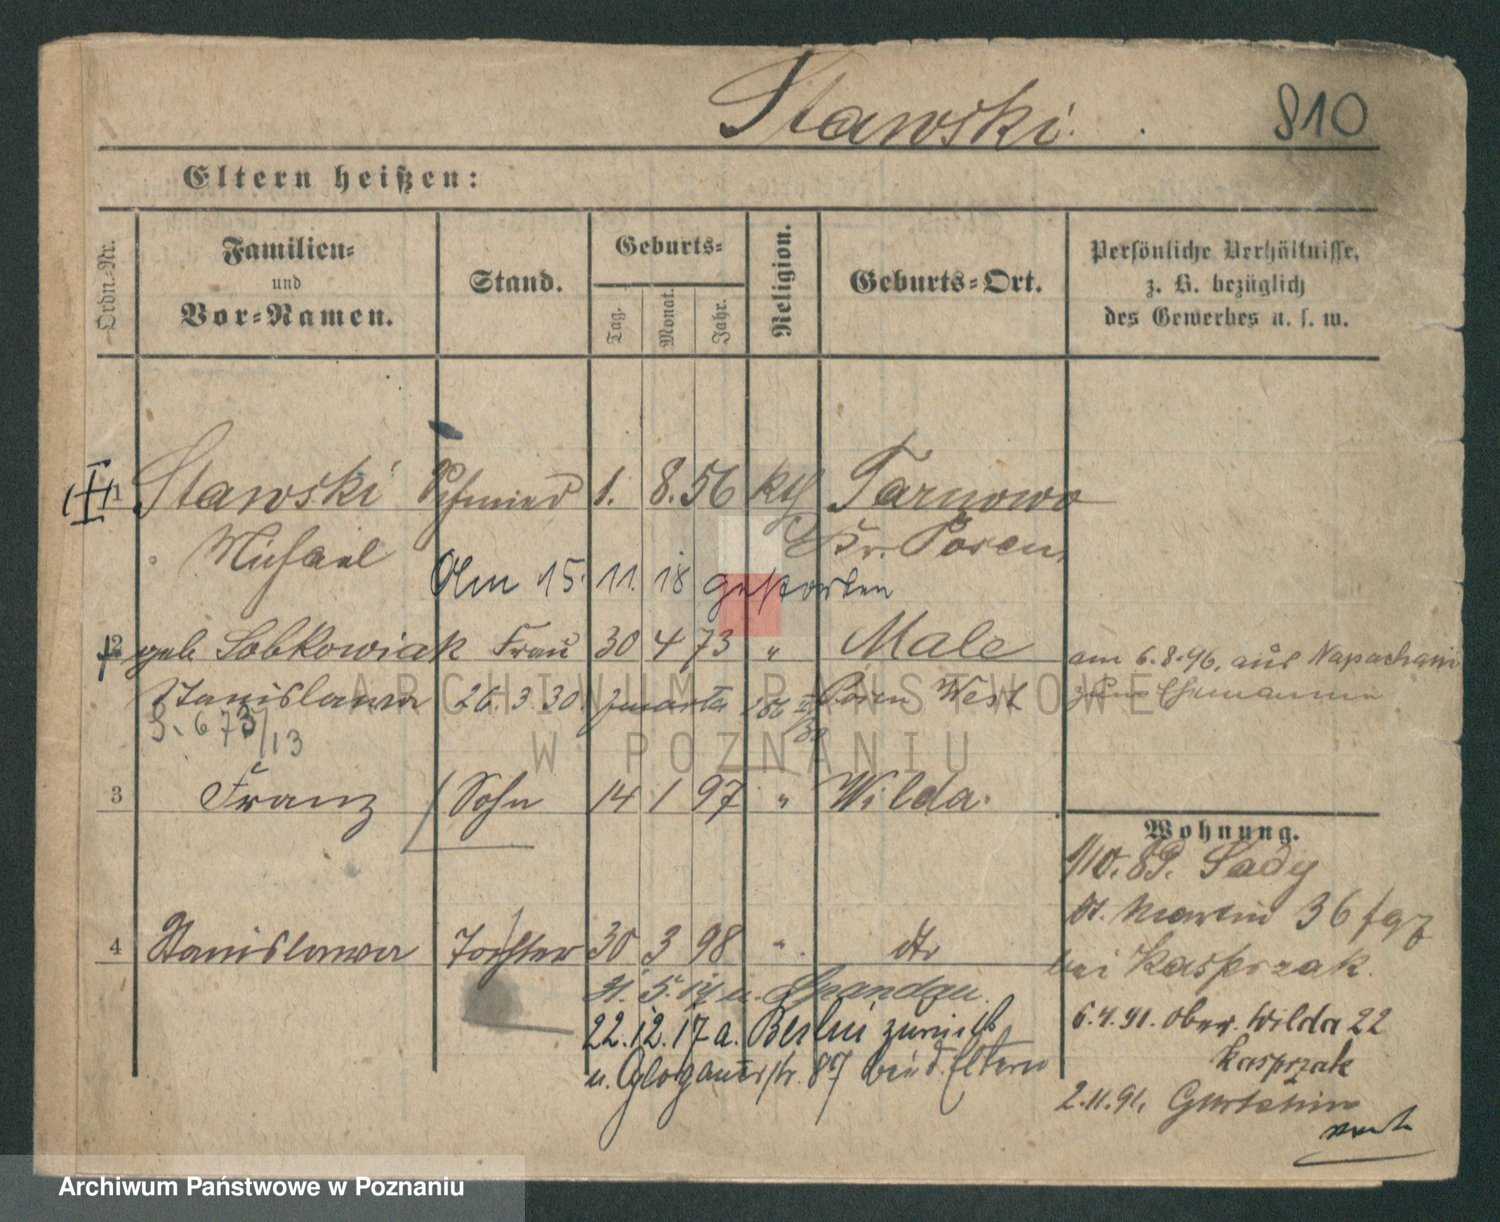 Stawski. 810
Eltern heißen:
Ordn.-Nr.
Familien-
und
Vor-Namen.
Stand.
Geburts-
Tag.
Monat.
Jahr.
Religion.
Geburts-Ort.
Persönliche Verhältnisse,
z. B. bezüglich
des Gewerbes u. s. w.
1 Stawski Schmied 1. 8. 56 kth Tarnowo
Michael Kr. Posen,
Am 15. 11. 18 gestorben
2 geb Sobkowiak Frau 30 4 73 " Male
am 6.8.96, aus Napachanie
Stanislawa 26. 3. 30. Posen West
zum Ehemanne
673/13
3 Franz Sohn 14 1 97 " Wilda.
Wohnung.
1/10. 89. Sady
St. Martin 36
bei Kasprzak.
4 Stanislawa Tochter 30 3 98 " dto
31. 5. 17 n. Spandau.
22. 12. 17 a. Berlin zurück
n. Glogauerstr. 87 bei d. Eltern
6.4.91. Ober. Wilda 22
Kasprzak
2.11.91.
ARCHIWUM PAŃSTWOWE
W POZNANIU
Archiwum Państwowe w Poznaniu